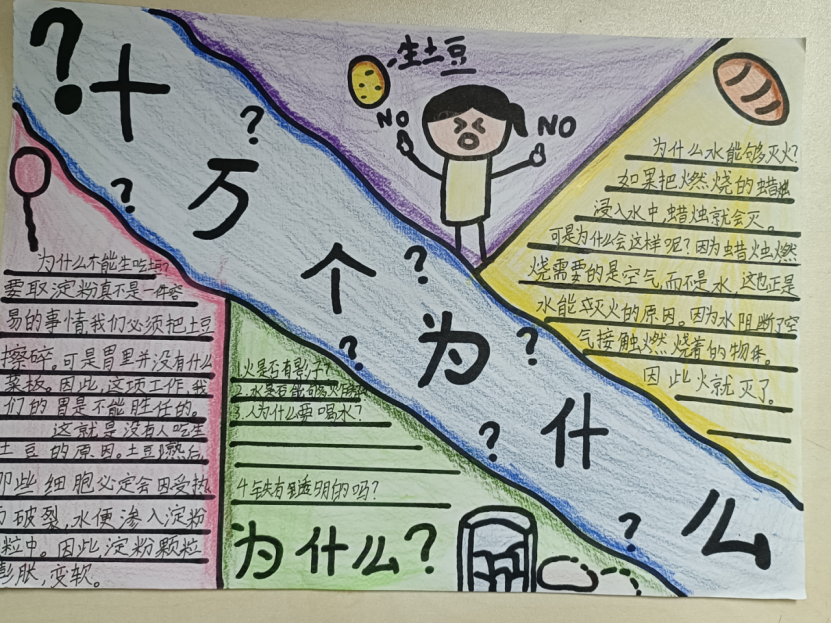 ?十万个为什么
? ? ? ? ? ? ?
生土豆
NO
NO
为什么水能够灭火?
如果把燃烧的蜡烛
浸入水中蜡烛就会灭。
可是为什么会这样呢?因为蜡烛燃
烧需要的是空气,而不是水,这也正是
水能灭火的原因。因为水阻断了空
气接触燃烧着的物体。
因此火就灭了。
为什么不能生吃土豆?
要取淀粉真不是一件容
易的事情,我们必须把土豆
擦碎。可是胃里并没有什么
菜板。因此,这项工作,我
们的胃是不能胜任的。
这就是没有人吃生
土豆的原因。土豆煮熟后,
那些细胞必定会因受热
破裂,水便渗入淀粉
粒中。因此淀粉颗粒
膨胀,变软。
1.火是否有影子?
2.水是否能够灭
3.人为什么要喝水?
4.铁有透明的吗?
为什么?